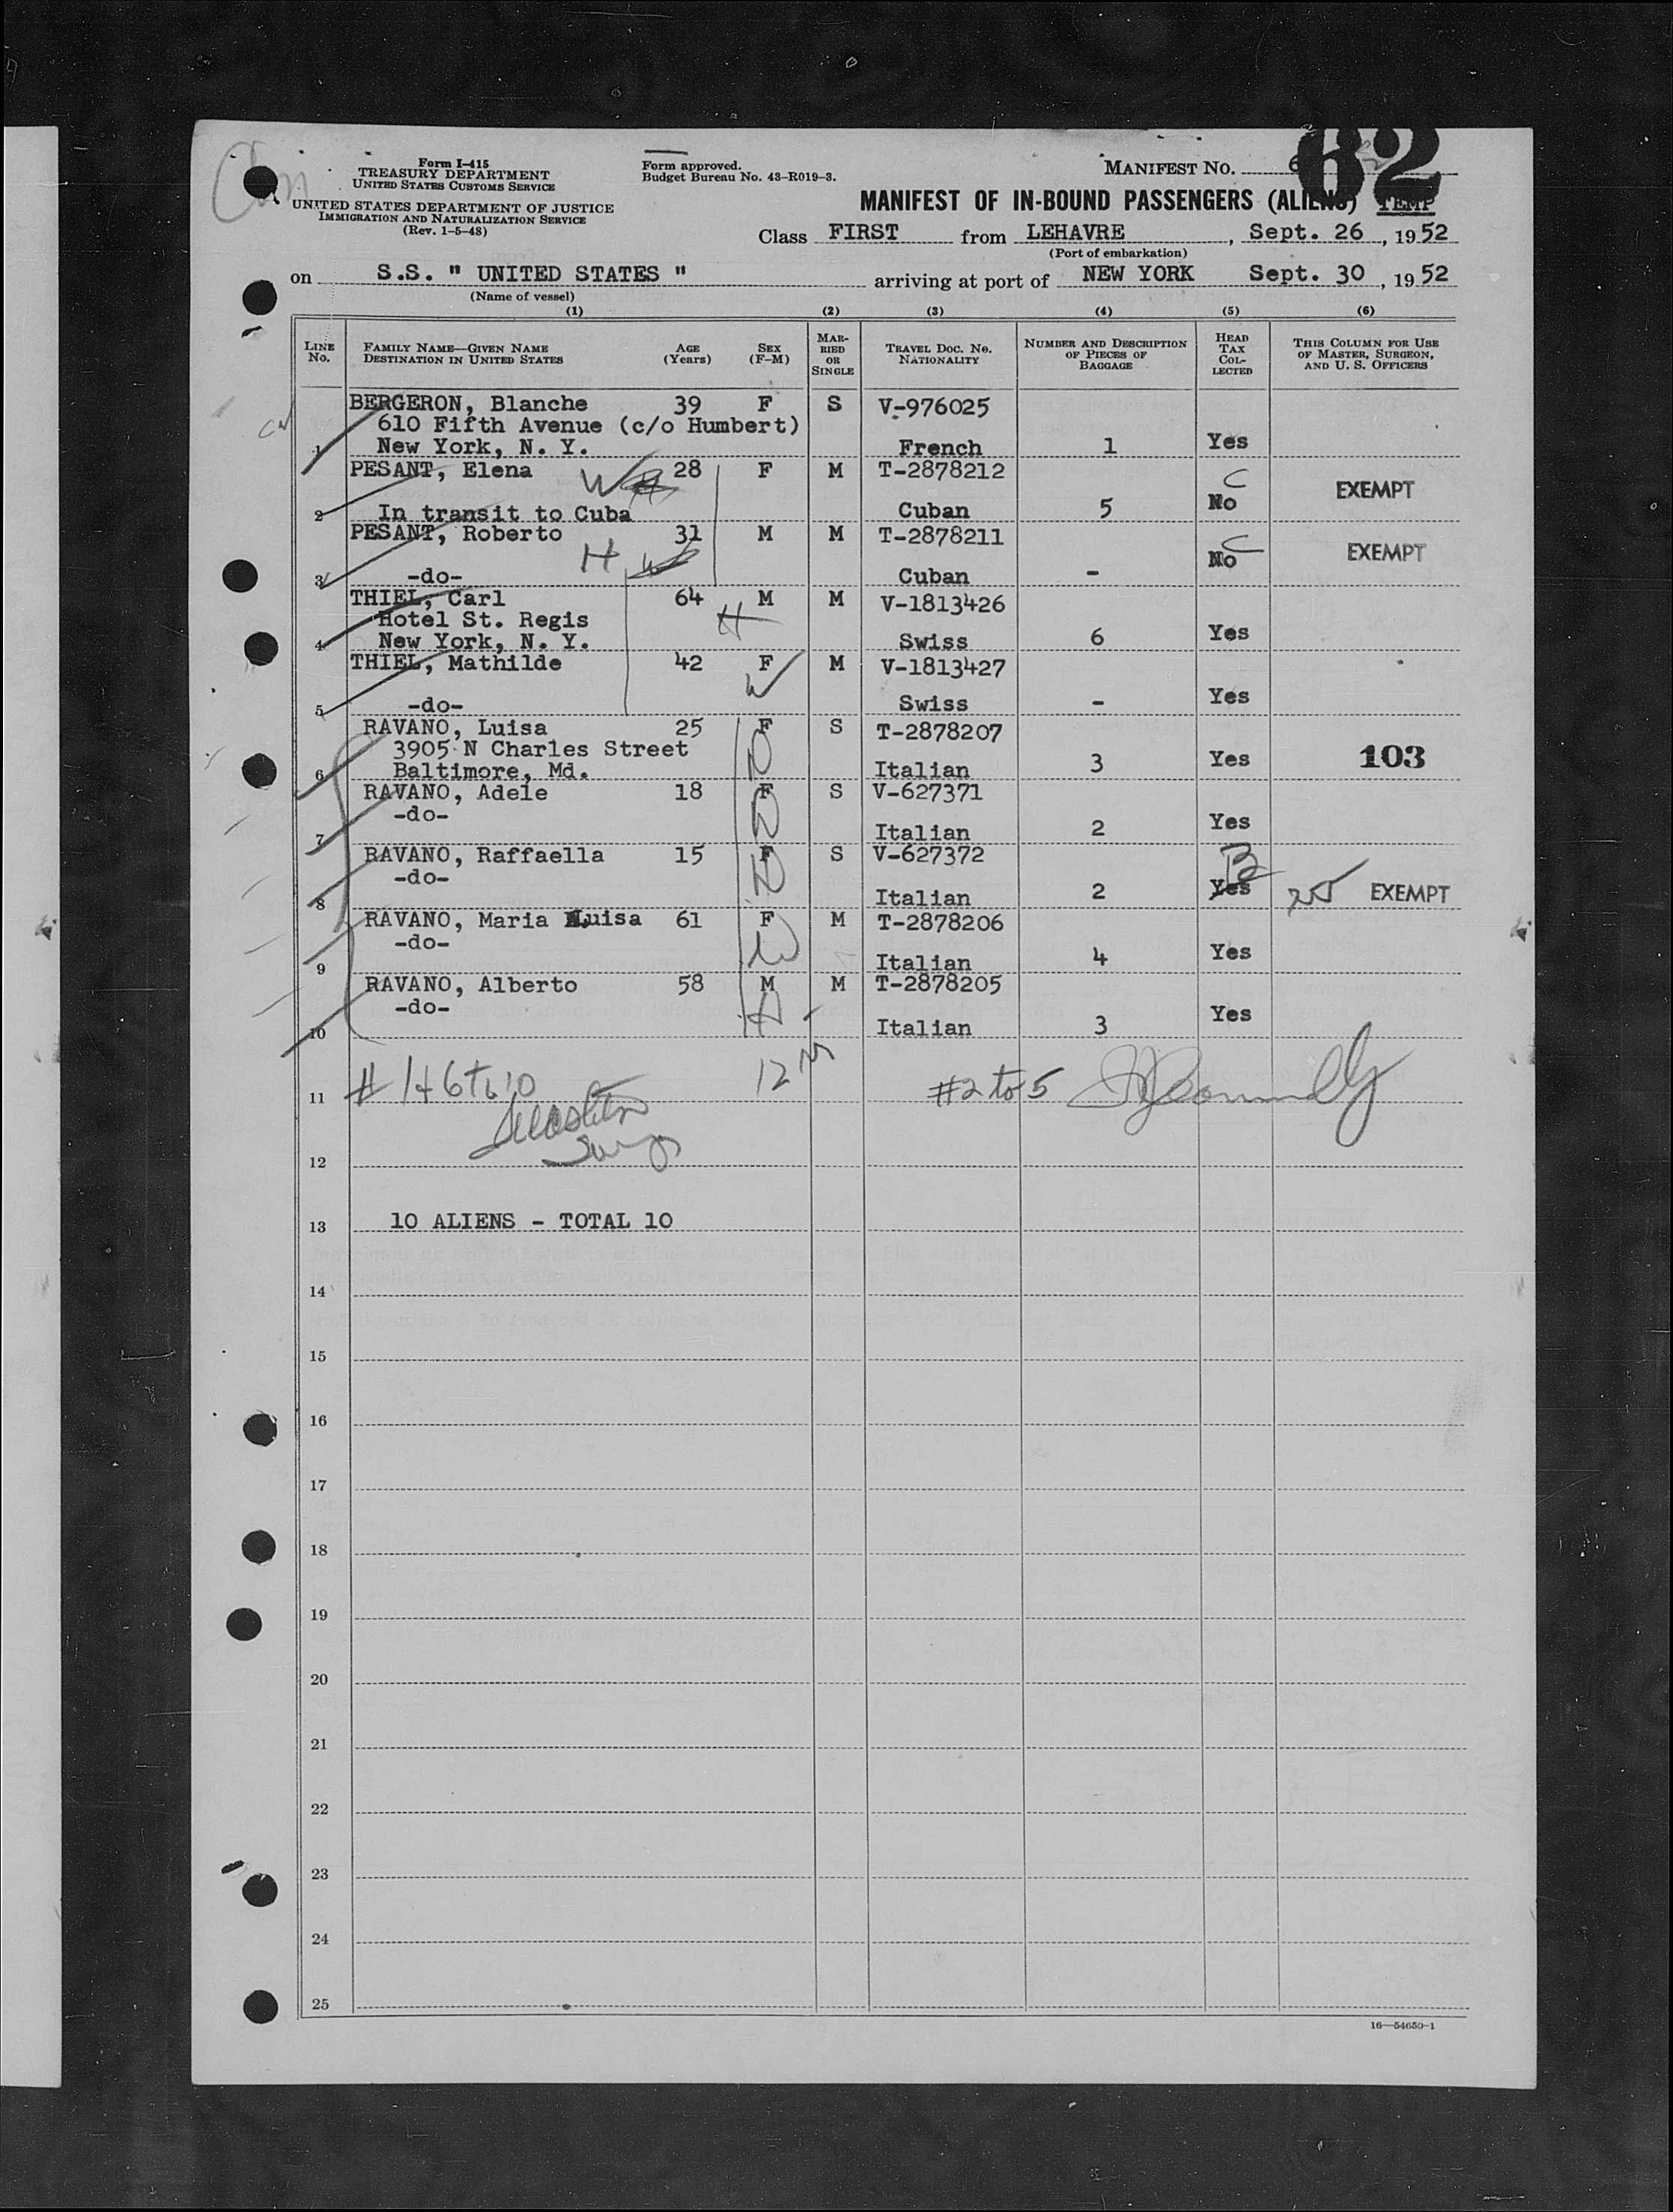 Form I-415
TREASURY DEPARTMENT
UNITED STATES CUSTOMS SERVICE
UNITED STATES DEPARTMENT OF JUSTICE
IMMIGRATION AND NATURALIZATION SERVICE
(Rev. 1-5-48)
Form approved.
Budget Bureau No. 43-R019-3.
MANIFEST NO. 62
MANIFEST OF IN-BOUND PASSENGERS (ALIENS) TEMP
Class FIRST from LEHAVRE, Sept. 26, 1952
(Port of embarkation)
on S.S. " UNITED STATES " arriving at port of NEW YORK Sept. 30, 1952
(Name of vessel)
(1) (2) (3) (4) (5) (6)
LINE No. FAMILY NAME—GIVEN NAME DESTINATION IN UNITED STATES AGE (Years) SEX (F-M) MARRIED OR SINGLE TRAVEL DOC. No. NATIONALITY NUMBER AND DESCRIPTION OF PIECES OF BAGGAGE HEAD TAX COLLECTED THIS COLUMN FOR USE OF MASTER, SURGEON, AND U. S. OFFICERS
BERGERON, Blanche 39 F S V-976025
610 Fifth Avenue (c/o Humbert)
1 New York, N. Y. French 1 Yes
PESANT, Elena W 28 F M T-2878212 C
2 In transit to Cuba Cuban 5 No EXEMPT
PESANT, Roberto 31 M M T-2878211 C
H
3 -do- Cuban - No EXEMPT
THIEL, Carl 64 M M V-1813426
Hotel St. Regis H
4 New York, N. Y. Swiss 6 Yes
THIEL, Mathilde 42 F M V-1813427
W
5 -do- Swiss - Yes
RAVANO, Luisa 25 F S T-2878207
3905 N Charles Street
6 Baltimore, Md. Italian 3 Yes 103
RAVANO, Adele 18 F S V-627371
-do-
7 Italian 2 Yes
RAVANO, Raffaella 15 F S V-627372
-do- B
8 Italian 2 Yes EXEMPT
RAVANO, Maria Luisa 61 F M T-2878206
-do- W
9 Italian 4 Yes
RAVANO, Alberto 58 M M T-2878205
-do- H
10 Italian 3 Yes
12 M
11 # 1+6 to 10 #2 to 5
12
13 10 ALIENS - TOTAL 10
14
15
16
17
18
19
20
21
22
23
24
25
16—54650-1